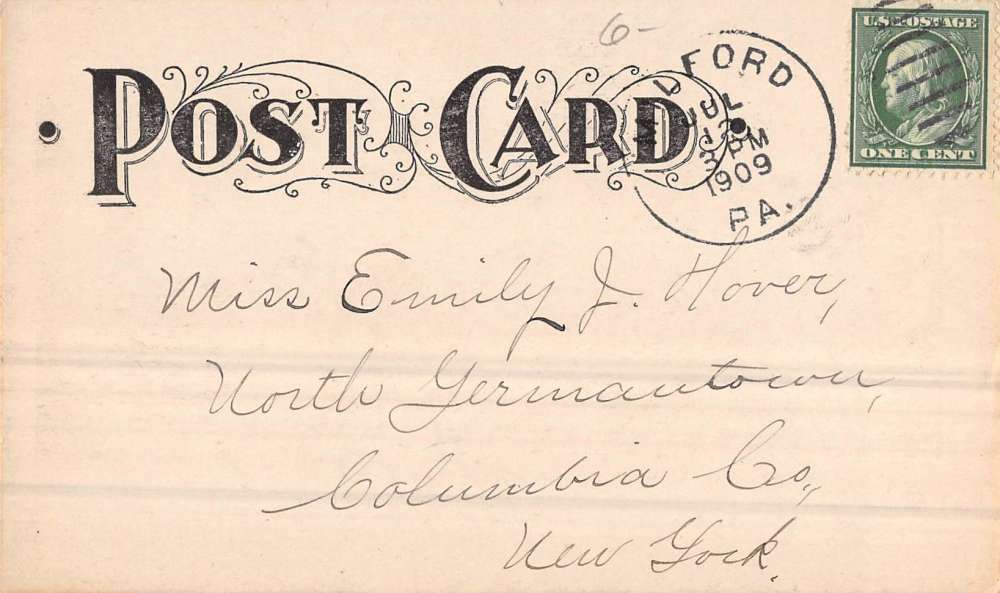 6-
POST CARD
FORD
JUL
3
PM
1909
PA.
U.S. POSTAGE
ONE CENT
Miss Emily J. Hover,
North Germantown,
Columbia Co.,
New York.